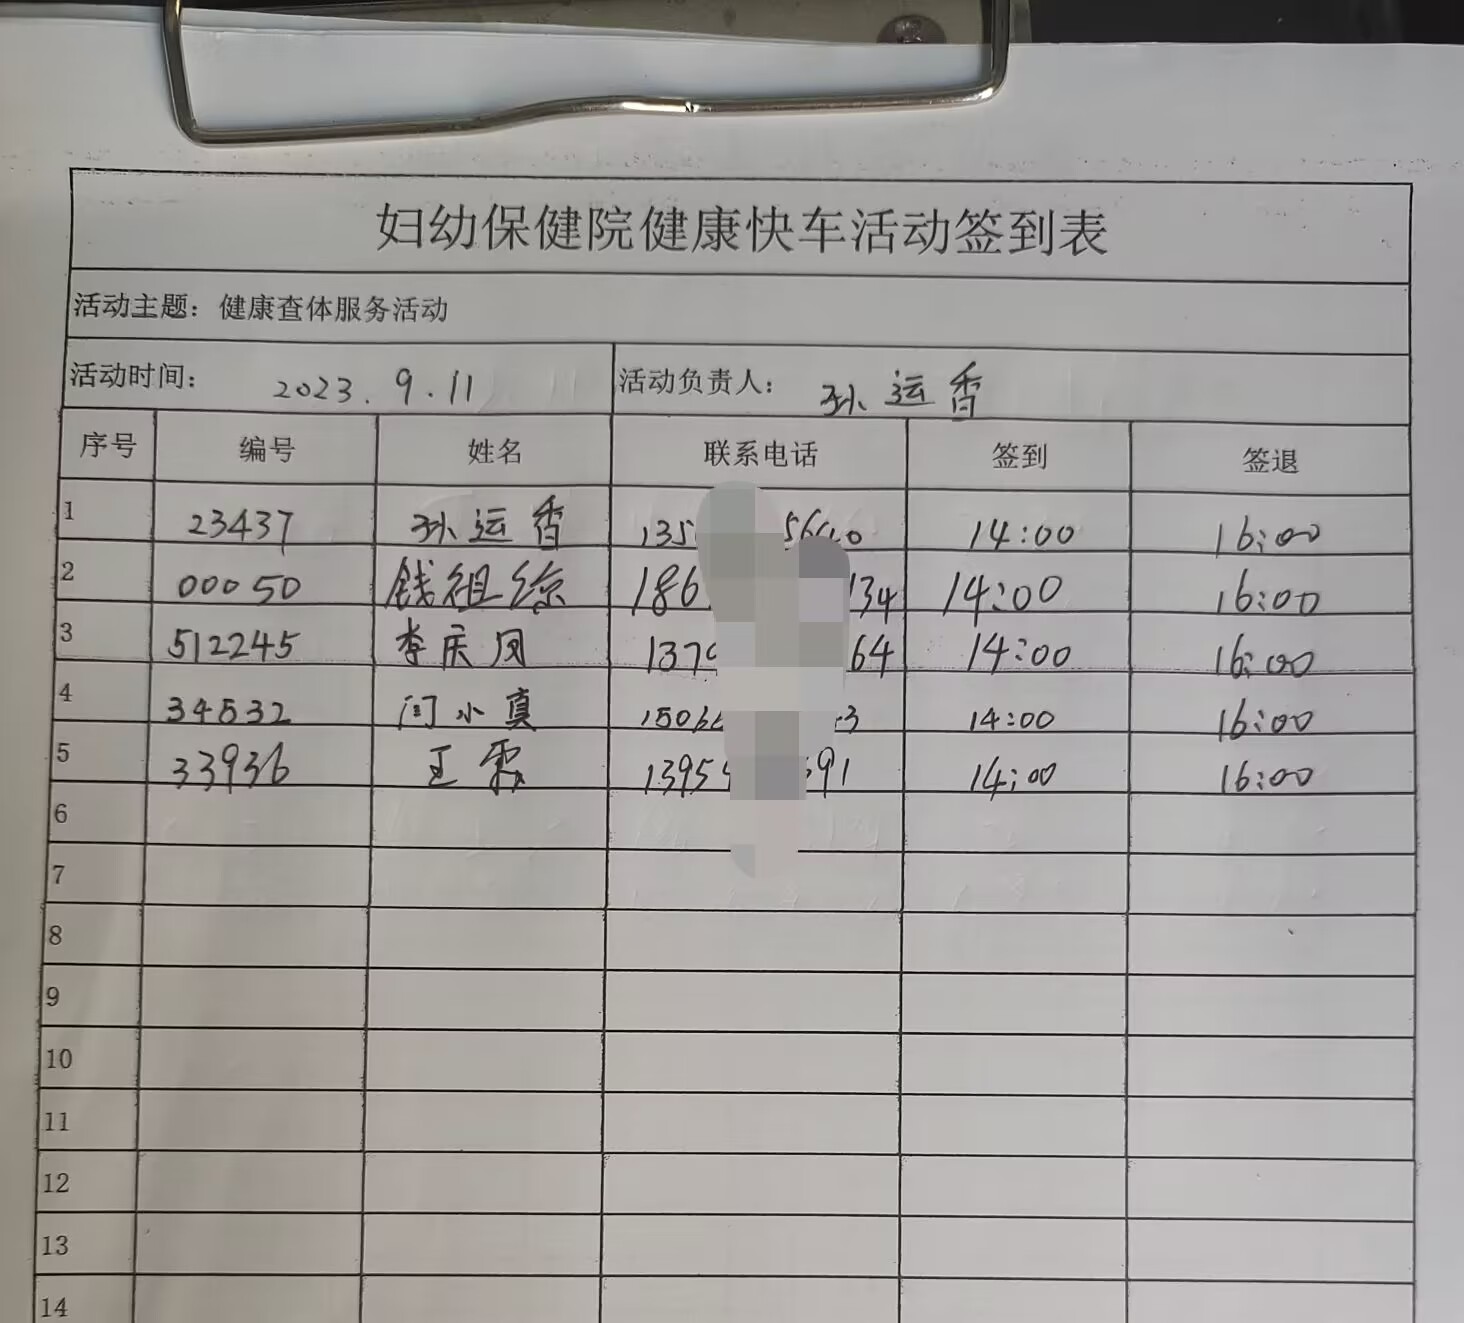 妇幼保健院健康快车活动签到表
活动主题：健康查体服务活动
活动时间： 2023.9.11 活动负责人： 孙运香
序号 编号 姓名 联系电话 签到 签退
1 23437 孙运香 135 14:00 16:00
2 00050 钱祖 186 134 14:00 16:00
3 512245 李庆凤 137 64 14:00 16:00
4 34532 闫小真 1506 3 14:00 16:00
5 33936 王霞 1395 91 14:00 16:00
6
7
8
9
10
11
12
13
14